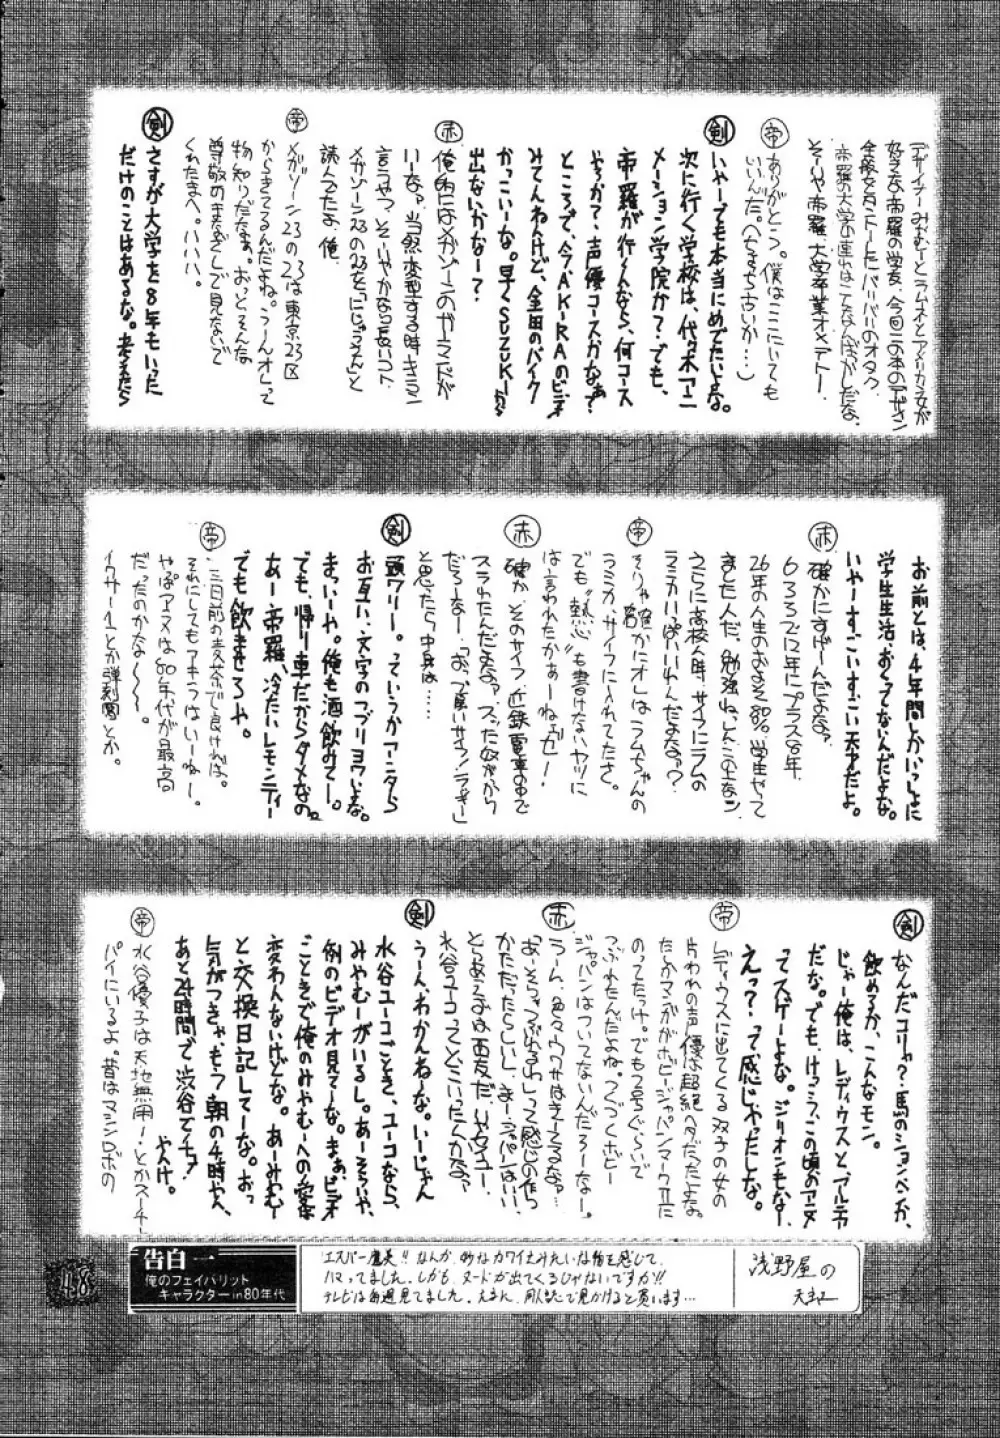 デザイナーみやむーとラムネとアメリカ女が
好きな帝羅の学友、今回この本のデザイン
全般女友とトータルバリバリのオタク。
帝羅の大学の連れはこんなんばかしだな。
そーいや帝羅、大学卒業オメデトー。
帝 ありがとう。僕はここにいても
いいんだ。(ちまち古いか…)
剣 いやーでも本当にめでたいよな。
次に行く学校は、代々木アニ
メーション学院か?でも、
帝羅が行くんなら、何コース
やろか?声優コースかなぁ?
ところで、今AKIRAのビデオ
みてんねんけど、金田のバイク
かっこいーな。早くSUZUKIから
出ないかなー?
赤 俺的にはメガゾーンのガーランドが
いーなぁ。当然変型する時キュイン
言うやつ。そーいやかなり長いコト
メガゾーン23の23を「にじゅうさん」と
読んでたよ、俺。
帝 メガゾーン23の23は東京23区
からきてるんだよね。うーんオレって
物知りだなぁ。おっとそんな
尊敬のまなざしで見ないで
くれたまへ。ハハハ。
剣 さすが大学を8年もいった
だけのことはあるな。考えたら
お前とは、4年間しかいっしょに
学生生活おくってないんだよな。
いやーすごいすごい天才だよ。
赤 確かにすげーんだよなぁ
6 3 3で12年にプラス8年
26年の人生のおよそ80%学生やって
ました人だ。勉強ねっしんこの上なシ。
さらに高校ん時、サイフにラムの
ラミカいっぱいいれてんだよなぁ?
帝 そりゃ確かにオレはラムちゃんの
ラミカ、サイフに入れてたさ。
でも"熱心"も書けないヤツに
は言われたかぁーねぇぜ!
赤 確か そのサイフ 近鉄電車の中で
スラれたんだよなぁ。スッた奴がかり
だろーなー。「おっ、厚いサイフ!ラッキー」
と思ったら中身は……
剣 頭ワリー。っていうかアニタら
お互い、文字のコブリョウいるな。
まっいーや。俺も酒飲めてー。
でも、帰り車だからダメなの。
あー帝羅、冷たいレモンティー
でも飲ませろや。
帝 三日前の麦茶で良ければ。
それにしてもアキラはいーねー。
やっぱアニメは80年代が最高
だったのかな〜〜。
イクサー1とか弾劾凰とか。
剣 なんだコリャ?馬のションベンか、
飲めるか、こんなモン。
じゃー俺は、レディウスと、アルテ
だな。でも、けっこう、この頃のアニメ
ってスゲーよな。ジリオンもなー
えっ?って感じやったしな。
帝 レディウスに出てくる双子の女の
片われの声優超絶ヘタだったよな。
たしかマンガがホビージャパンマークIIに
のってたっけ。でも7号ぐらいで
つぶれたんだよね。つくづくホビー
ジャパンはついてないんだろーなー。
赤 うーん、色々ウワサはきてるなぁ…
「あーそりゃつぶれるわ」って感じの作り
かただったらしいし、まージャパンはいい、
とりあえずは西友だ。リャダイユー。
水谷ユーコってどこいったんかなぁ?
剣 うーん、わかんねーな。いーじゃん
水谷ユーコごとき、ユーコなら、
みやむーがいるし。あーそういや、
例のビデオ見てーな。まぁ、ビデオ
ごときで俺のみやむーへの愛は
変わんないけどな。あーみやむー
と交換日記してーな。おっ
気がつきゃもう朝の4時やん、
あと24時間で渋谷でチュ!
やんけ。
帝 水谷優子は天地無用!とかスーチー
パイにいるよ。昔はマシンロボの
告白一
俺のフェイバリット
キャラクターin80年代
エスパー魔美!!なんか、妙なカワイさみたいな物を感じて
ハマってました。しかも、ヌードが出てくるじゃないですか!!
テレビは毎週見てました。えまん、同人誌で見かけると買います…
浅野屋の
48